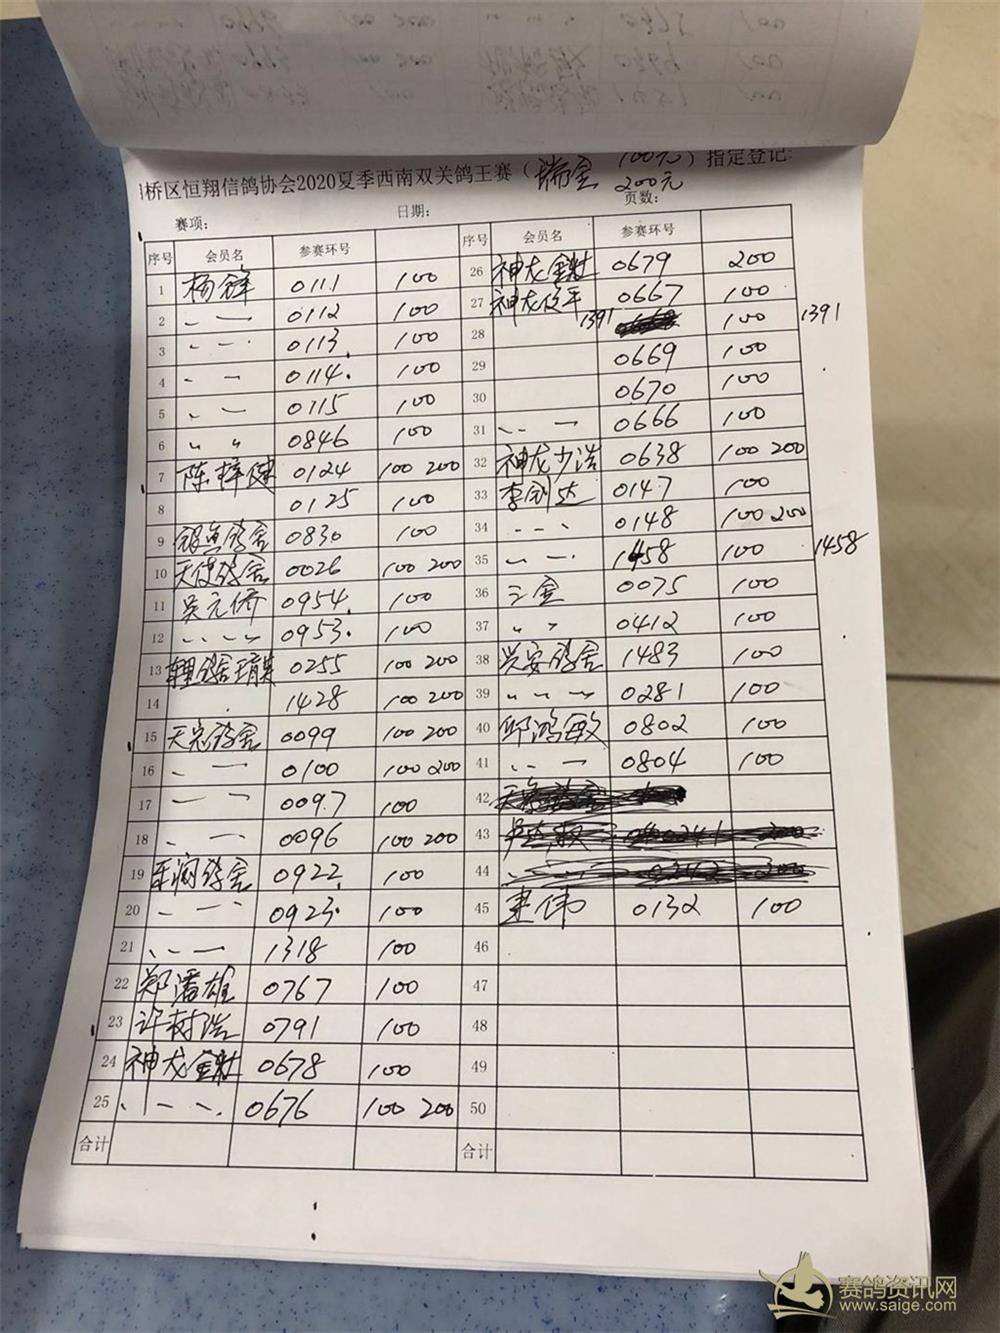 桥区恒翔信鸽协会2020夏季西南双关鸽王赛（瑞金 100元 200元）指定登记
赛项： 日期： 页数：
序号 会员名 参赛环号
1 杨锋 0111 100
2 〃 0112 100
3 〃 0113 100
4 〃 0114 100
5 〃 0115 100
6 〃 0846 100
7 陈梓健 0124 100 200
8 0125 100
9 银鱼鸽舍 0830 100
10 天使鸽舍 0026 100 200
11 吴元侨 0954 100
12 〃 0953 100
13 0255 100 200
14 1428 100 200
15 天宠鸽舍 0099 100 200
16 〃 0100 100 200
17 〃 0097 100
18 〃 0096 100 200
19 鸽舍 0922 100
20 〃 0923 100
21 〃 1318 100
22 郑潘雄 0767 100
23 许树浩 0791 100
24 神龙 0678 100
25 〃 0676 100 200
合计
序号 会员名 参赛环号
26 神龙 0679 200
27 神龙 0667 100
28 1391 100 1391
29 0669 100
30 0670 100
31 〃 0666 100
32 神龙少浩 0638 100 200
33 李剑达 0147 100
34 〃 0148 100 200
35 〃 1458 100 1458
36 三金 0075 100
37 〃 0412 100
38 兴安鸽舍 1483 100
39 〃 0281 100
40 邱鸿敏 0802 100
41 〃 0804 100
42
43 0241 200
44 0242 200
45 建伟 0132 100
46
47
48
49
50
合计
赛鸽资讯网
www.saige.com